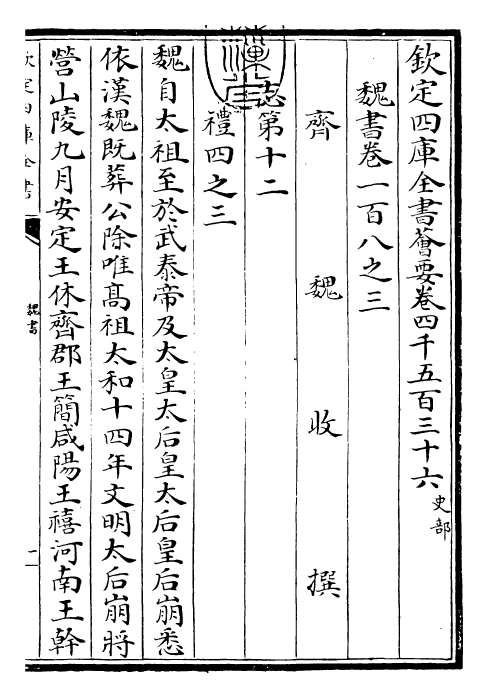 欽定四庫全書薈要卷四千五百三十六史部
魏書卷一百八之三
齊魏收撰
志第十二
禮四之三
魏自太祖至於武泰帝及太皇太后皇太后皇后崩悉
依漢魏既葬公除唯高祖太和十四年文明太后崩將
營山陵九月安定王休齊郡王簡咸陽王禧河南王幹
欽定四庫全書
魏書
一